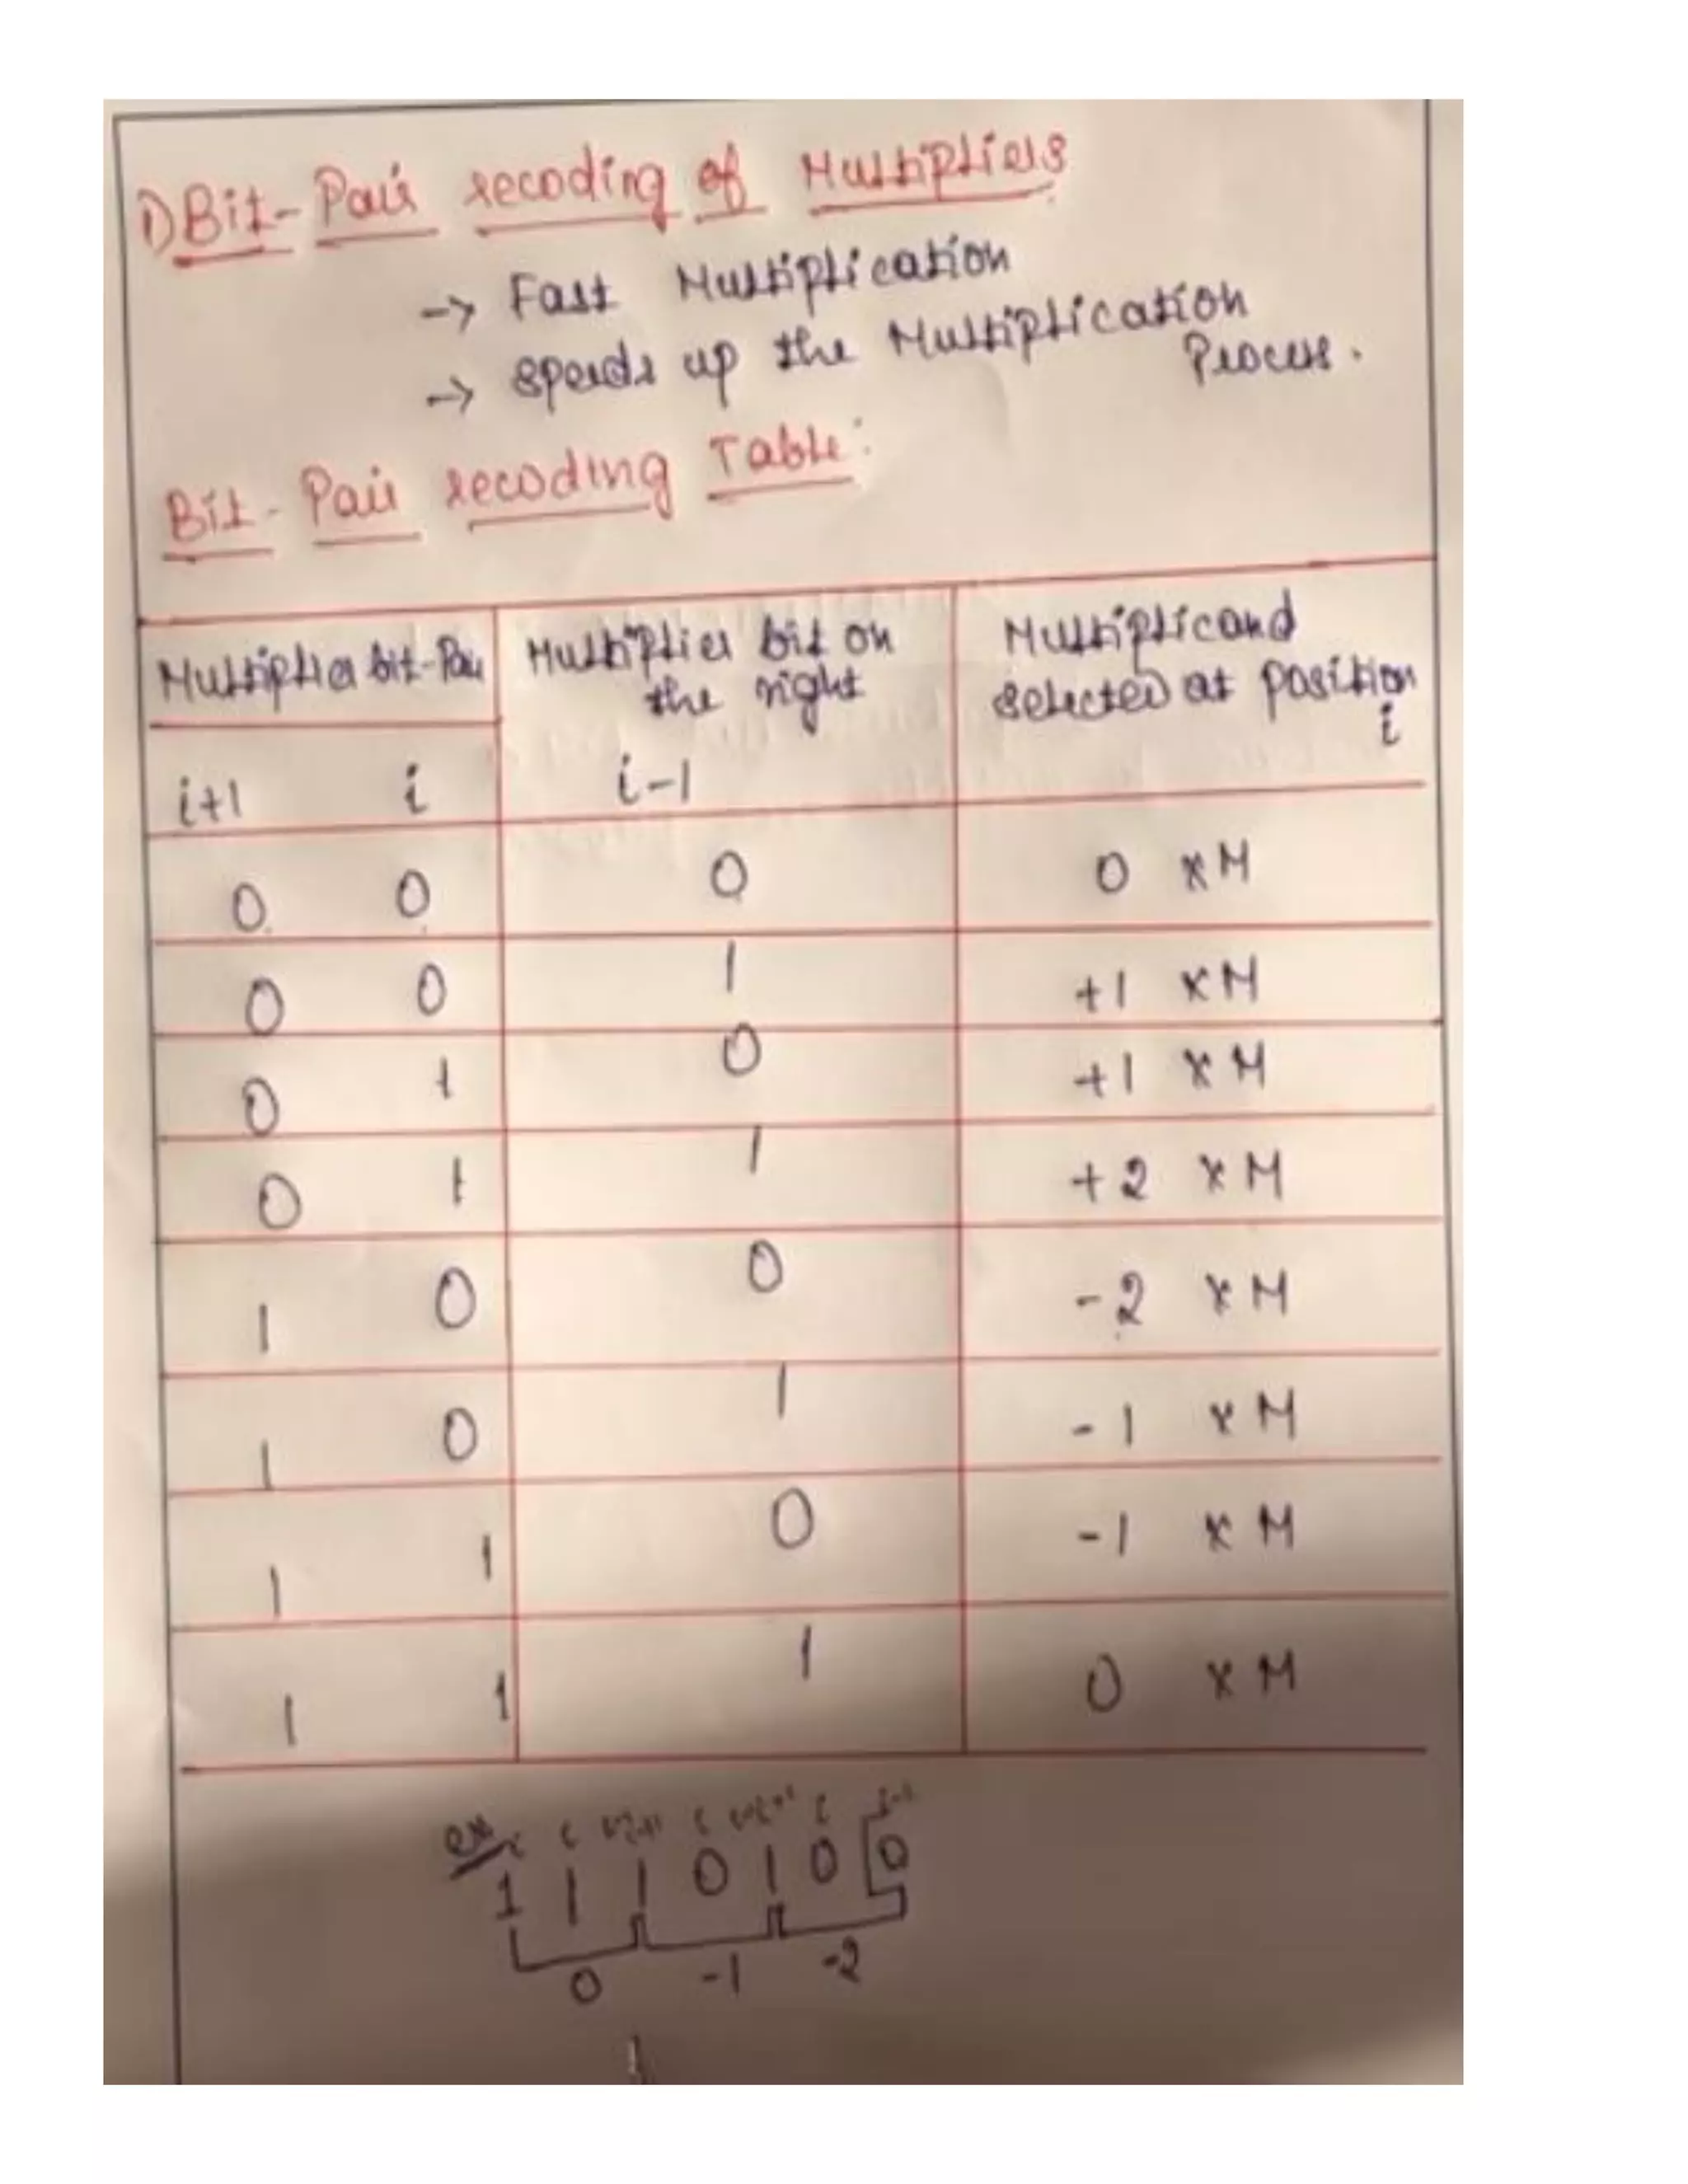 1) Bit-Pair recoding of Multipliers
-> Fast Multiplication
-> speeds up the Multiplication
Process.
Bit-Pair recoding Table:
Multiplier bit-Pair Multiplier bit on the right Multiplicand selected at position i
i+1 i i-1
0 0 0 0 x M
0 0 1 +1 x M
0 1 0 +1 x M
0 1 1 +2 x M
1 0 0 -2 x M
1 0 1 -1 x M
1 1 0 -1 x M
1 1 1 0 x M
ex i i i i-1
1 1 1 0 1 0 0
0 -1 -2